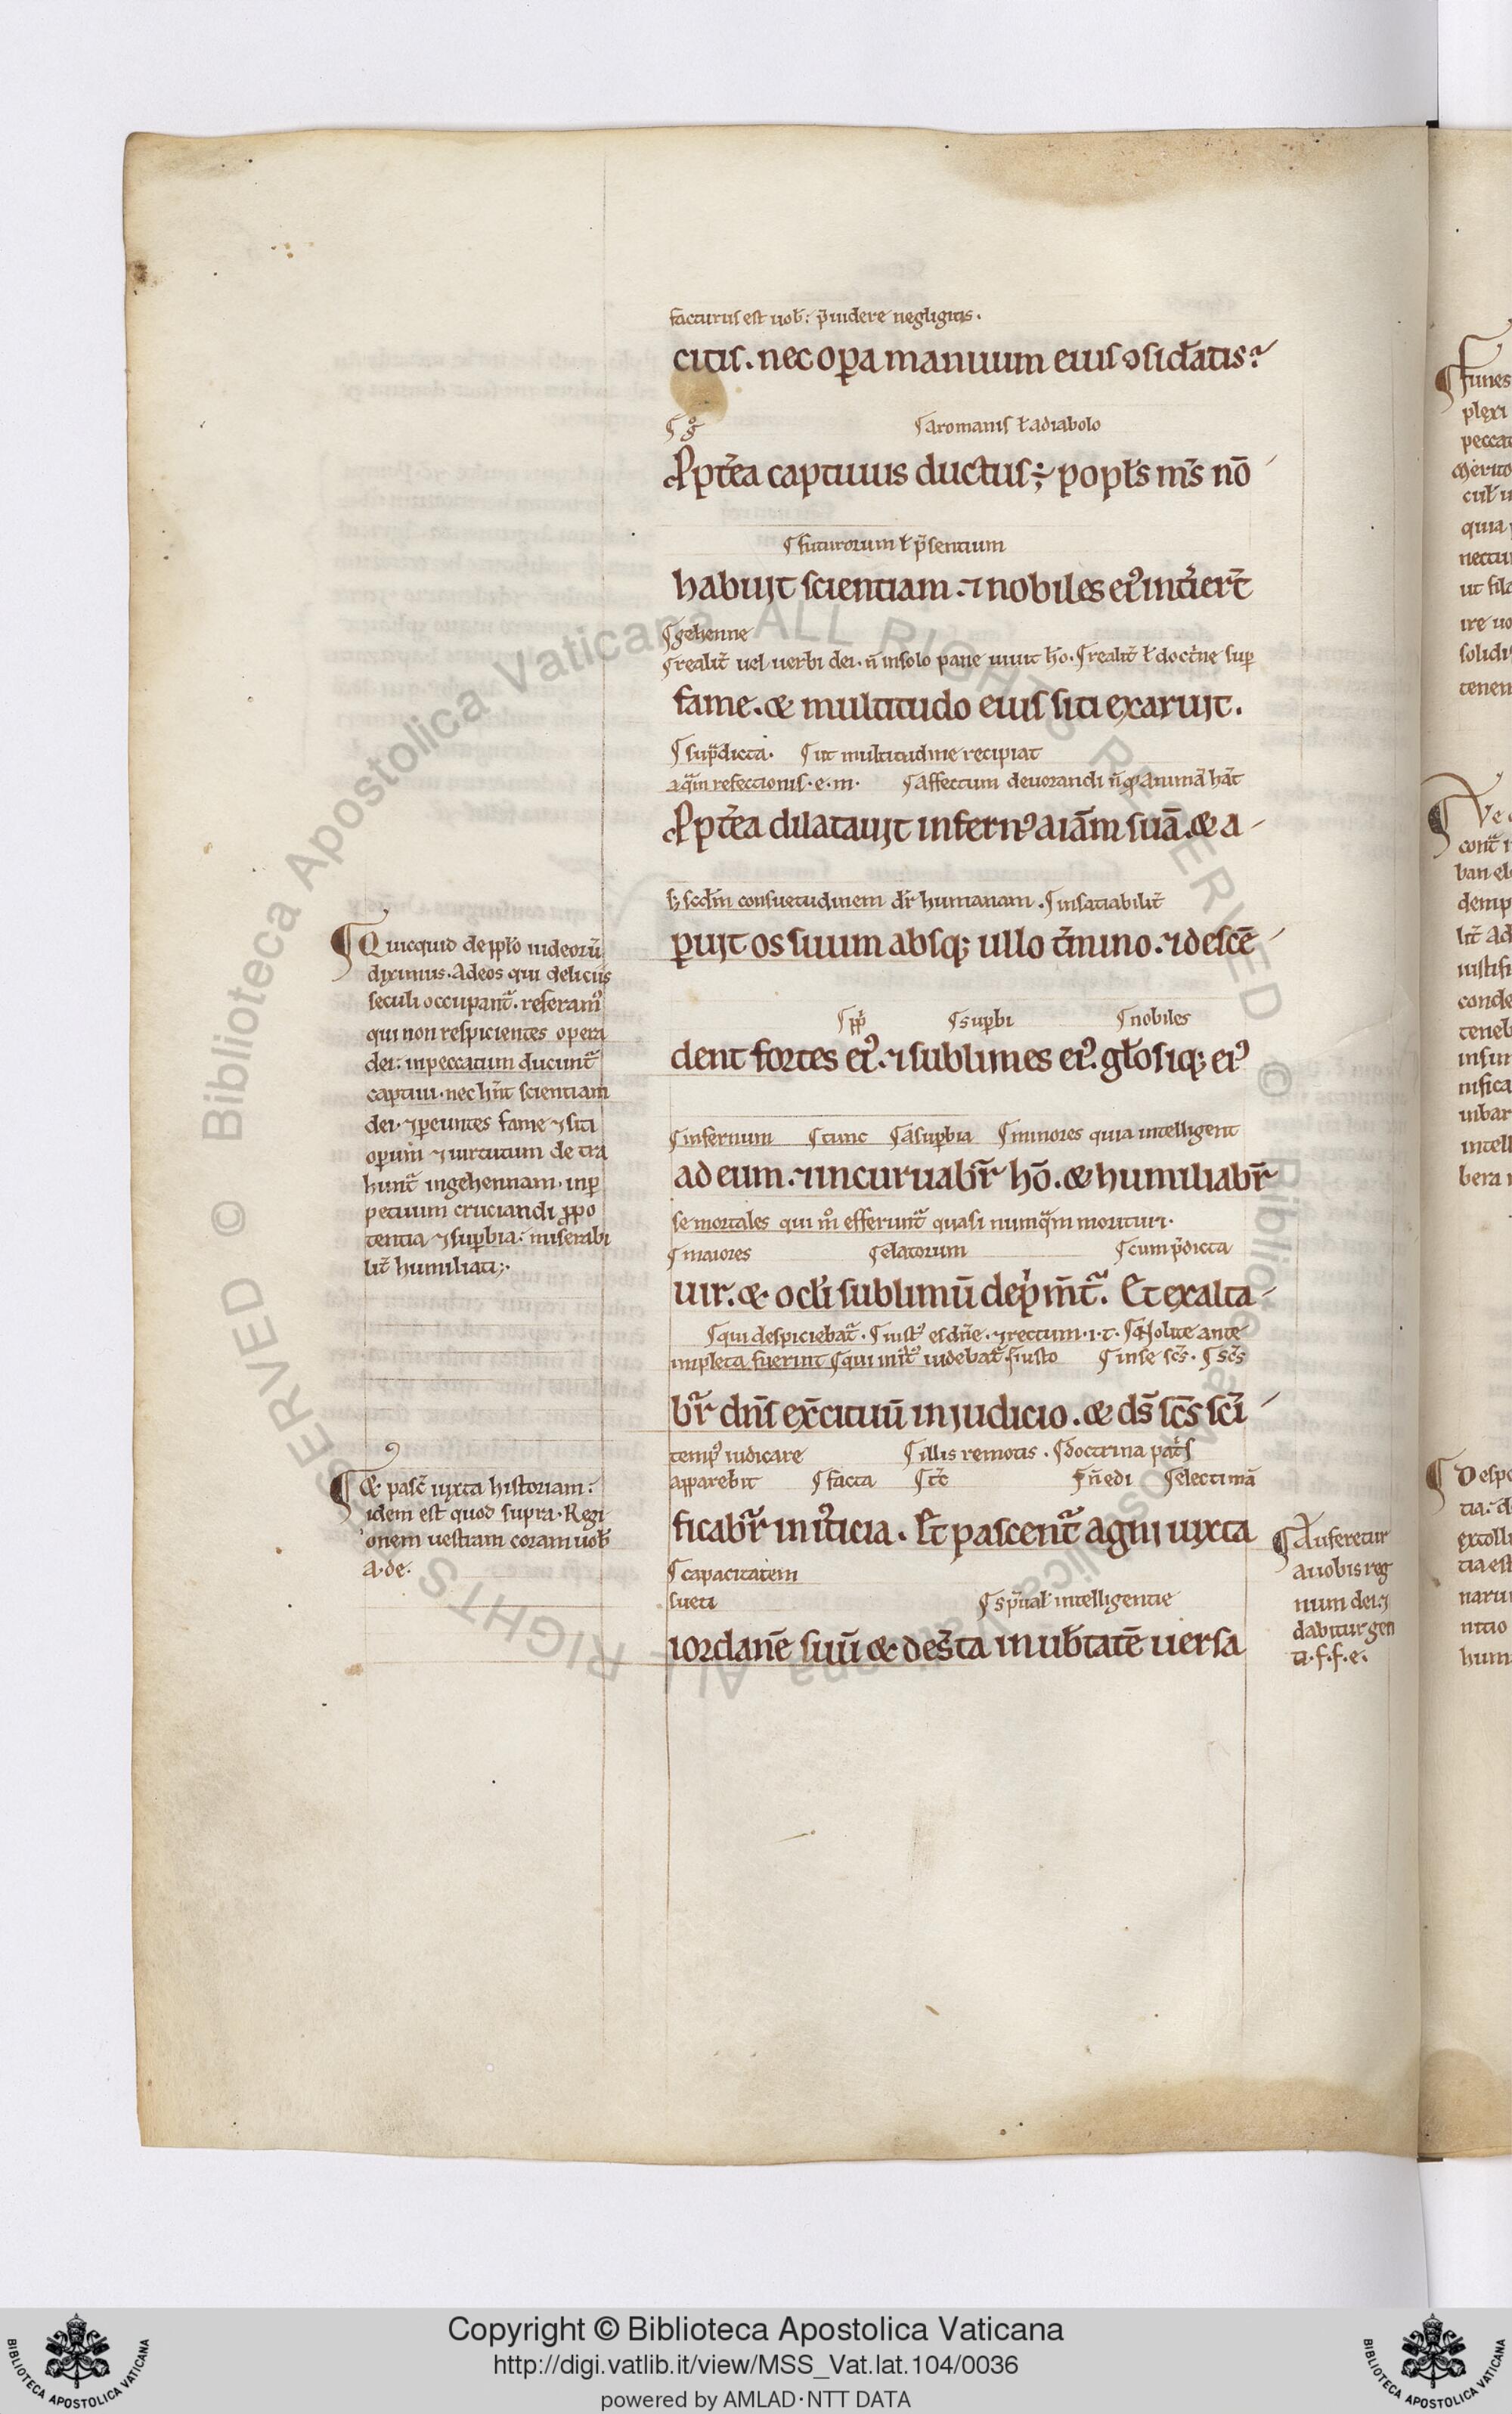 facturus est uob̄. p̄uidere negligitis.
citis. nec opa manuum eius ꝯsid̄atis?
aromanis ł adiabolo
Ꝓpt̄ea captiuus ductus ÷ popłs m̄s nō
futurorum ł p̄sentium
habuit scientiam. ⁊ nobiles eiꝰ int̄iert̄
gehenne
realit̄ uel uerbi dei. n̄ insolo pane uiuit hō. realit̄ ł doct̄ne sup̄
fame. & multitudo eius siti exaruit.
sup̄dicta. ut multitudine recipiat
aq̄m refectionis. e. m. affectum deuorandi n̄ ꝙ animā hāt
Ꝓpt̄ea dilatauit infernꝰ aiām suā. & a
sꝫ scd̄m consuetudinem dr̄ humanam. insatiabilit̄
ꝑuit os suum absqꝫ ullo t̄mino. ⁊ descē
pp̄ suꝑbi nobiles
dent fortes eiꝰ. ⁊ sublimes eiꝰ. głosiqꝫ eiꝰ
infernum tunc asuꝑbia minores quia intelligent
ad eum. ⁊ incuruabr̄ hō. & humiliabr̄
se mortales qui m̊ efferunt̄ quasi numq̄m morituri.
maiores elatorum cum p̄dicta
uir. & oclī sublimū dep̄mt̄. Et exalta
qui despiciebat̄. iustꝰ es dn̄e. ⁊ rectum. i. t. Nolite ante
impleta fuerint qui iniꝰtꝰ uidebat̄. iusto inse sc̄s. sc̄s
br̄ dn̄s ex̄cituū in judicio. & ds̄ sc̄s sc̄i
tempꝰ iudicare illis remotis. doctrina pat̄s
apparebit facta t̄c n̄ edi electi mā
ficabr̄ in iꝰticia. Et pascent̄ agni iuxta
capacitatem
sueti sp̄ual̄ intelligentie
iordanē suū & des̄ta in ub̄tatē uersa
Quicquid de pp̄lo iudeorū
diximus. Adeos qui deliciis
seculi occupant̄. referamꝰ
qui non respicientes opera
dei. inpeccatum ducunt̄
captiui. nec hn̄t scientiam
dei. ⁊ ꝑeuntes fame ⁊ siti
oꝑum ⁊ uirtutum de tra
hunt̄ ingehennam. inꝑ
petuum cruciandi ꝓ po
tentia ⁊ suꝑbia. miserabi
lit̄ humiliati;.
& pasc̄ iuxta historiam.
idem est quod supra. Regi
onem uestram coram uob̄
a. de.
Auferetur
auobis reg
num dei. ⁊
dabitur gen
ti. f. f. e.
funes
plexi
peccat
merito
quia
nectu
ut fila
ire uo
solidi
tenen
Ve
cont̄
ban el
demp
lit̄ ad
iustifi
conde
teneb
insun
nifica
uibar
intell
bera
Despe
tia. d
extolli
tia est
naru
nitio
hum
Copyright © Biblioteca Apostolica Vaticana
http://digi.vatlib.it/view/MSS_Vat.lat.104/0036
powered by AMLAD·NTT DATA
BIBLIOTECA APOSTOLICA VATICANA
BIBLIOTECA APOSTOLICA VATICANA
© Biblioteca Apostolica Vaticana ALL RIGHTS RESERVED © Biblioteca Apostolica Vaticana ALL RIGHTS RESERVED